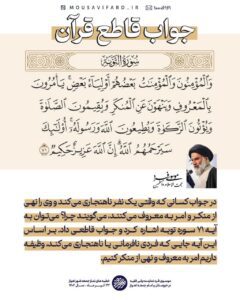 MOUSAVIFARD.IR
جواب قاطع قرآن
سورة التوبة
وَالْمُؤْمِنُونَ وَالْمُؤْمِنَاتُ بَعْضُهُمْ أَوْلِيَاءُ بَعْضٍ يَأْمُرُونَ
بِالْمَعْرُوفِ وَيَنْهَوْنَ عَنِ الْمُنْكَرِ وَيُقِيمُونَ الصَّلَوٰةَ
وَيُؤْتُونَ الزَّكَوٰةَ وَيُطِيعُونَ اللَّهَ وَرَسُولَهُ أُولَٰئِكَ
سَيَرْحَمُهُمُ اللَّهُ إِنَّ اللَّهَ عَزِيزٌ حَكِيمٌ ۷۱
در جواب کسانی که وقتی یک نفر ناهنجاری می‌کند و وی را نهی
از منکر و امر به معروف می‌کنند، می‌گویند چرا؟ می‌توان به
آیه ۷۱ سوره توبه اشاره کرد و جواب قاطعی داد. بر اساس
این آیه جایی که فردی نافرمانی یا ناهنجاری می‌کند، وظیفه
داریم امر به معروف و نهی از منکر کنیم.